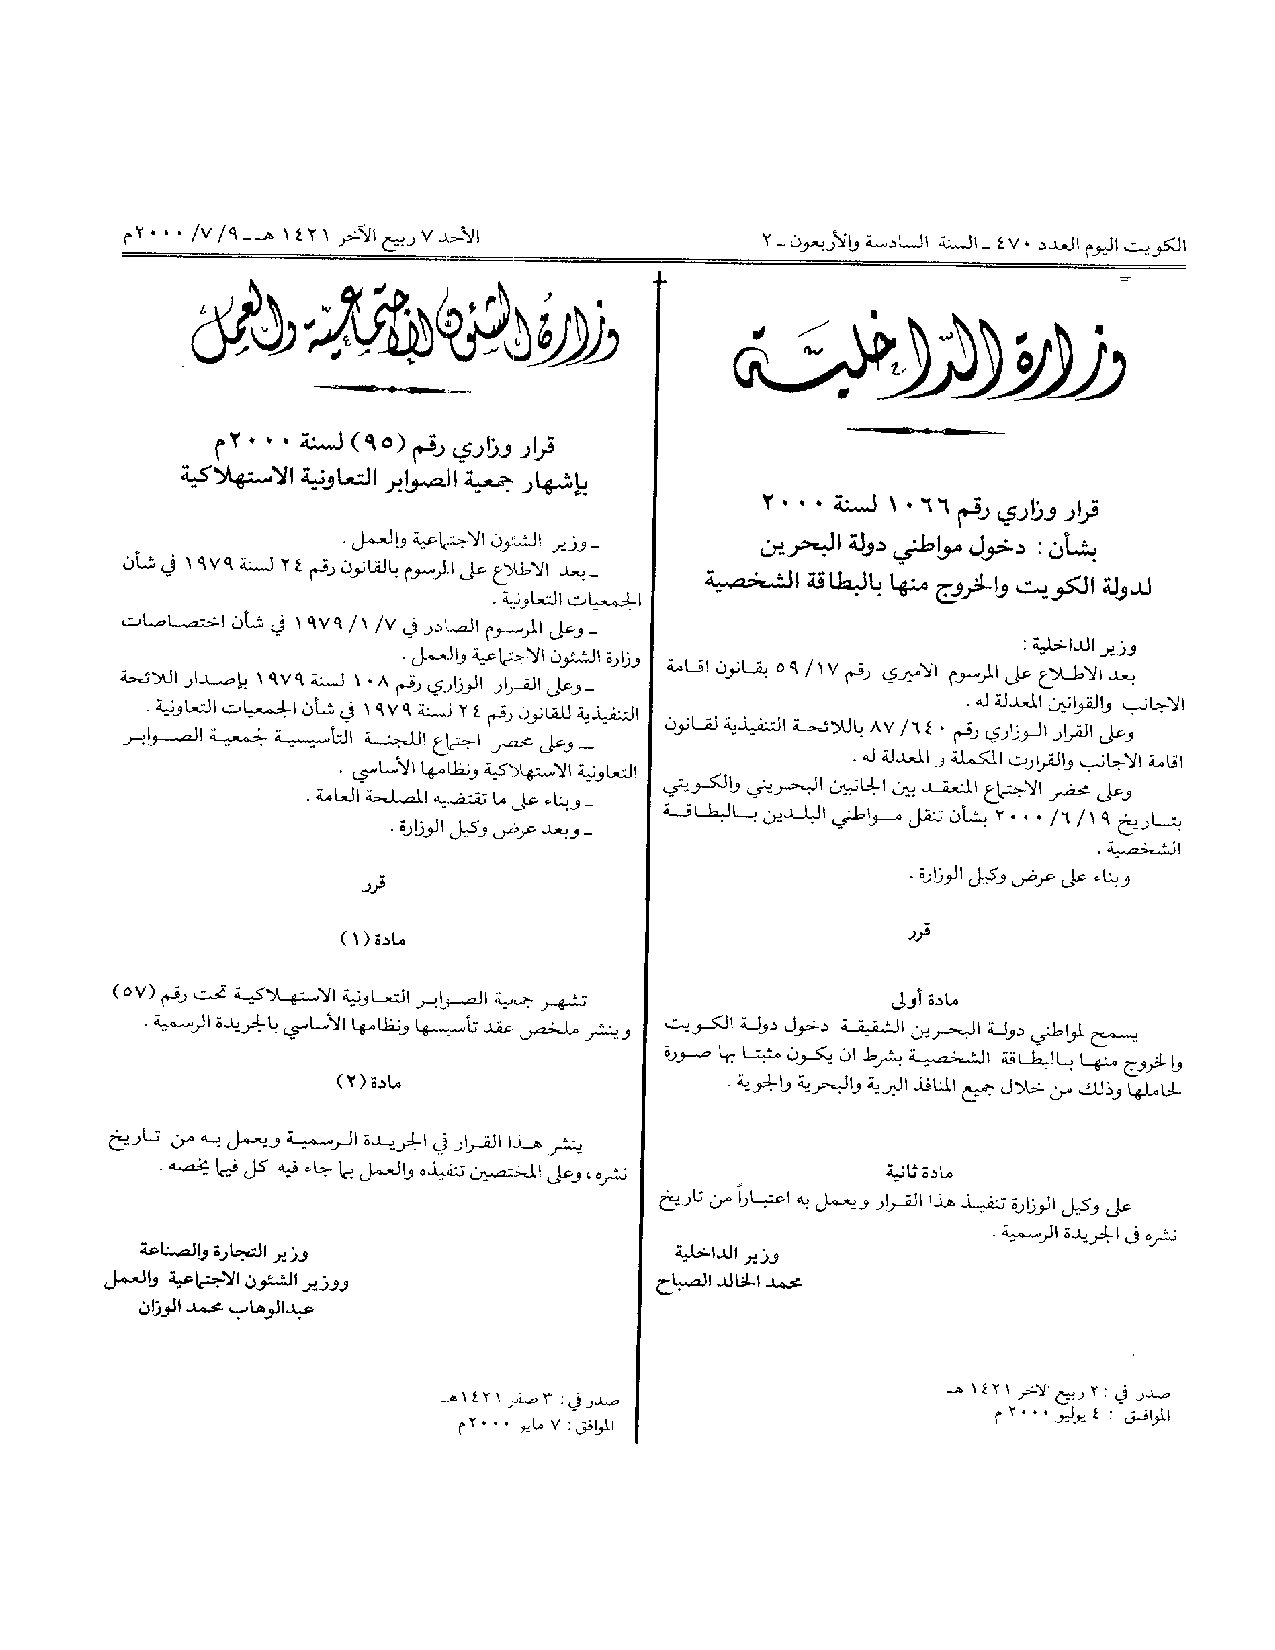 الكويت اليوم العدد ٤٧٠ ـ السنة السادسة والأربعون ـ ٢
الأحد ٧ ربيع الآخر ١٤٢١ هـ ــ ٢٠٠٠/٧/٩م
وزارة الداخلية
قرار وزاري رقم ١٠٦٦ لسنة ٢٠٠٠
بشأن : دخول مواطني دولة البحرين
لدولة الكويت والخروج منها بالبطاقة الشخصية
وزير الداخلية :
بعد الاطلاع على المرسوم الاميري رقم ٥٩/١٧ بقانون اقامة
الاجانب والقوانين المعدلة له .
وعلى القرار الوزاري رقم ٨٧/٦٤٠ باللائحة التنفيذية لقانون
اقامة الاجانب والقرارت المكملة و المعدلة له .
وعلى محضر الاجتماع المنعقد بين الجانبين البحريني والكويتي
بتاريخ ٢٠٠٠/٦/١٩ بشأن تنقل مواطني البلدين بالبطاقة
الشخصية .
وبناء على عرض وكيل الوزارة .
قرر
مادة أولى
يسمح لمواطني دولة البحرين الشقيقة دخول دولة الكويت
والخروج منها بالبطاقة الشخصية بشرط ان يكون مثبتا بها صورة
لحاملها وذلك من خلال جميع المنافذ البرية والبحرية والجوية .
مادة ثانية
على وكيل الوزارة تنفيذ هذا القرار ويعمل به اعتباراً من تاريخ
نشره في الجريدة الرسمية .
وزير الداخلية
محمد الخالد الصباح
صدر في : ٢ ربيع الاخر ١٤٢١ هـ
الموافق : ٤ يوليو ٢٠٠٠ م
وزارة الشئون الاجتماعية والعمل
قرار وزاري رقم (٩٥) لسنة ٢٠٠٠م
بإشهار جمعية الصوابر التعاونية الاستهلاكية
ـ وزير الشئون الاجتماعية والعمل .
ـ بعد الاطلاع على المرسوم بالقانون رقم ٢٤ لسنة ١٩٧٩ في شأن
الجمعيات التعاونية .
ـ وعلى المرسوم الصادر في ١٩٧٩/١/٧ في شأن اختصاصات
وزارة الشئون الاجتماعية والعمل .
ـ وعلى القرار الوزاري رقم ١٠٨ لسنة ١٩٧٩ بإصدار اللائحة
التنفيذية للقانون رقم ٢٤ لسنة ١٩٧٩ في شأن الجمعيات التعاونية .
ـ وعلى محضر اجتماع اللجنة التأسيسية لجمعية الصوابر
التعاونية الاستهلاكية ونظامها الأساسي .
ـ وبناء على ما تقتضيه المصلحة العامة .
ـ وبعد عرض وكيل الوزارة .
قرر
مادة (١)
تشهر جمعية الصوابر التعاونية الاستهلاكية تحت رقم (٥٧)
وينشر ملخص عقد تأسيسها ونظامها الأساسي بالجريدة الرسمية .
مادة (٢)
ينشر هذا القرار في الجريدة الرسمية ويعمل به من تاريخ
نشره ، وعلى المختصين تنفيذه والعمل بما جاء فيه كل فيما يخصه .
وزير التجارة والصناعة
ووزير الشئون الاجتماعية والعمل
عبدالوهاب محمد الوزان
صدر في : ٣ صفر ١٤٢١هـ
الموافق : ٧ مايو ٢٠٠٠م